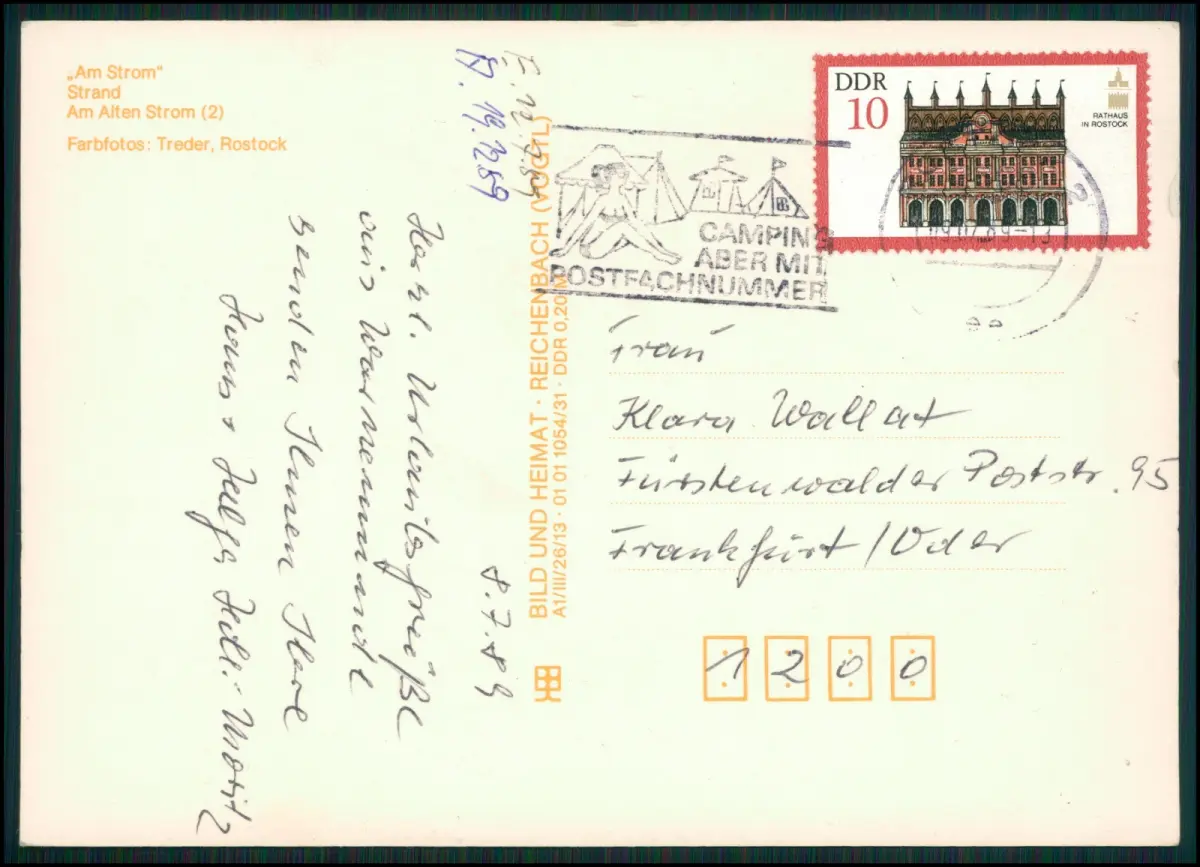 „Am Strom“
Strand
Am Alten Strom (2)
Farbfotos: Treder, Rostock
8.7.89
Herzl. Urlaubsgrüße
aus Warnemünde
senden Ihnen Ihre
Moritz
BILD UND HEIMAT · REICHENBACH (VOGTL)
A1/III/26/13 · 01 01 1054/31 · DDR 0,20 M
CAMPING
ABER MIT
POSTFACHNUMMER
DDR
10
RATHAUS
IN ROSTOCK
Frau
Klara Wallat
Fürstenwalder Poststr. 95
Frankfurt/Oder
1200